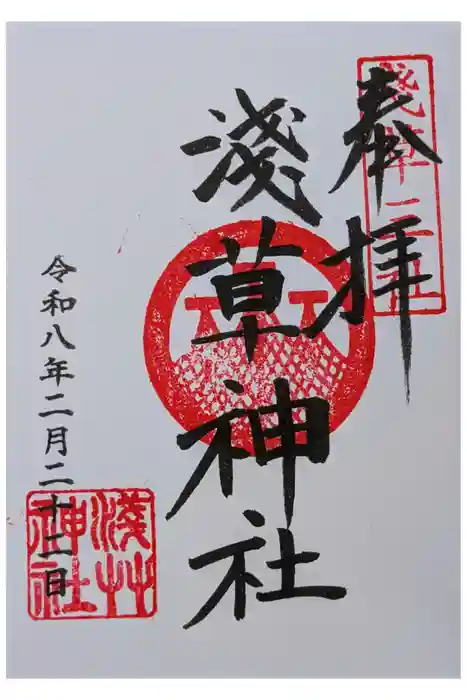 奉拝
淺草三社
淺草神社
令和八年二月二十二日
淺草神社